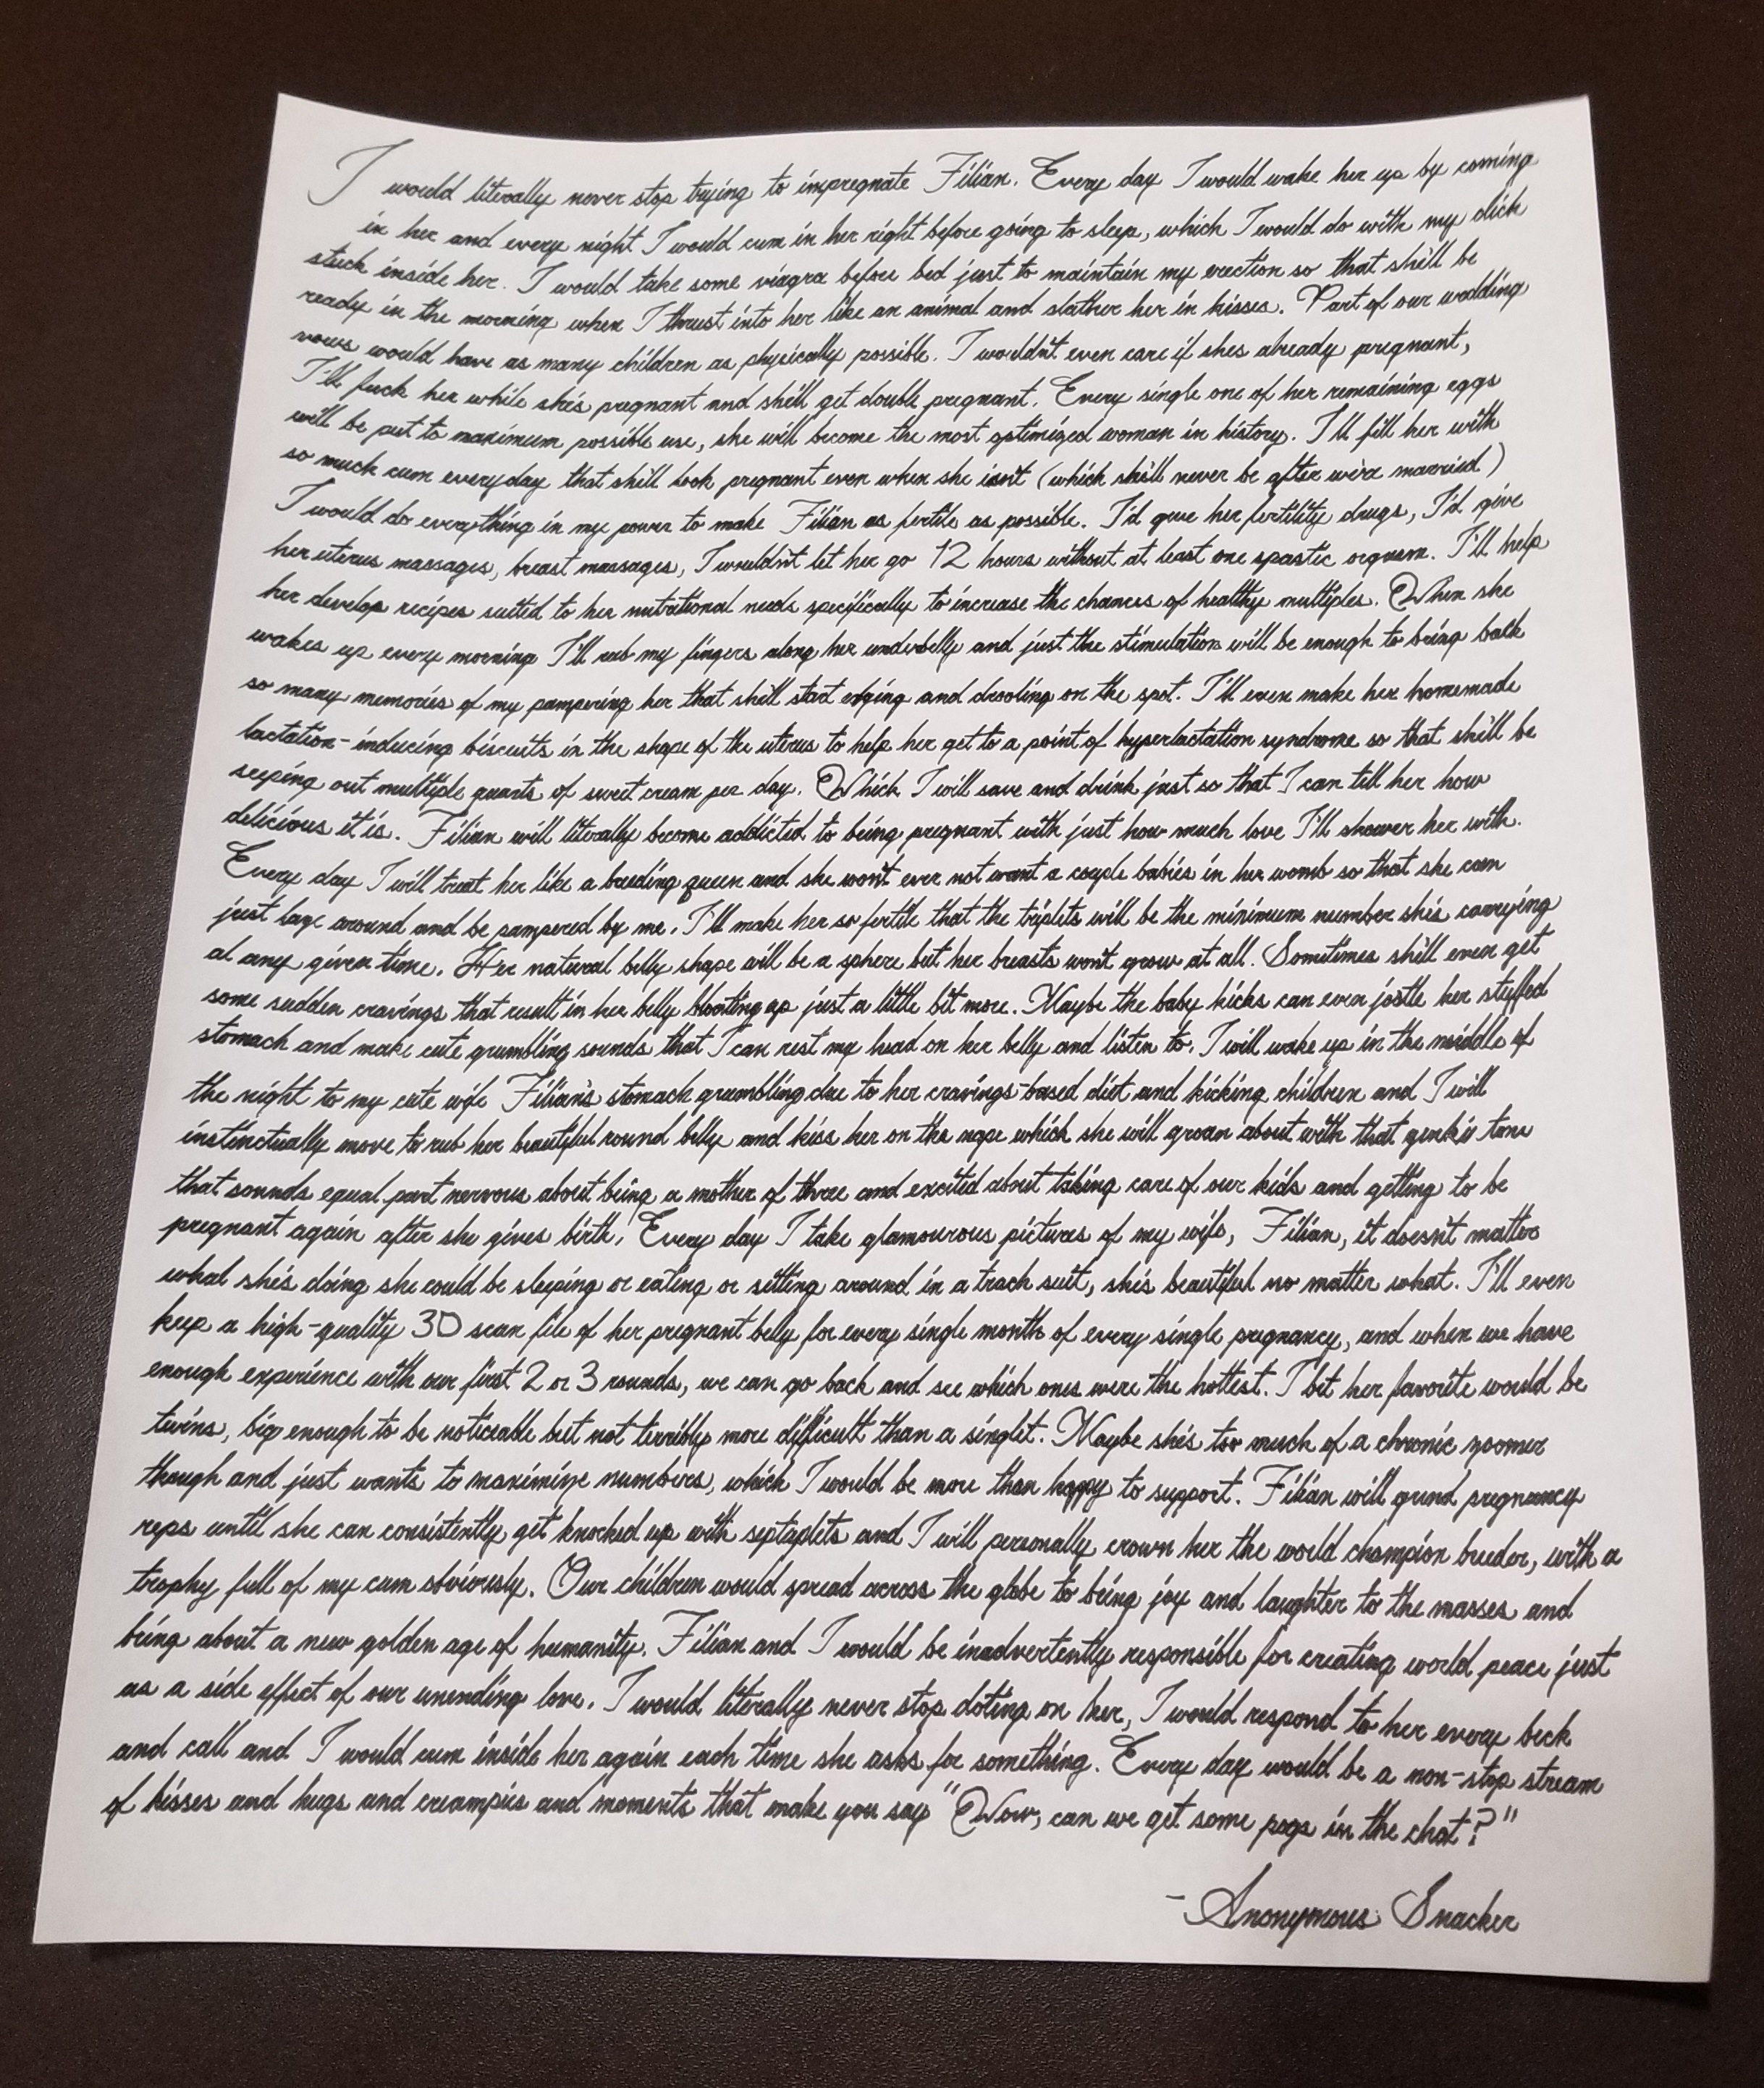 I would literally never stop trying to impregnate Filian. Every day I would wake her up by coming
in her and every night I would cum in her right before going to sleep, which I would do with my dick
stuck inside her. I would take some viagra before bed just to maintain my erection so that she'll be
ready in the morning when I thrust into her like an animal and slather her in kisses. Part of our wedding
vows would have as many children as physically possible. I wouldn't even care if shes already pregnant,
I'll fuck her while she's pregnant and she'll get double pregnant. Every single one of her remaining eggs
will be put to maximum possible use, she will become the most optimized woman in history. I'll fill her with
so much cum everyday that she'll look pregnant even when she isn't (which she'll never be after we're married)
I would do everything in my power to make Filian as fertile as possible. I'd give her fertility drugs, I'd give
her uterus massages, breast massages, I wouldn't let her go 12 hours without at least one spastic orgasm. I'll help
her develop recipes suited to her nutritional needs specifically to increase the chances of healthy multiples. When she
wakes up every morning I'll rub my fingers along her underbelly and just the stimulation will be enough to bring back
so many memories of my pampering her that she'll start edging and drooling on the spot. I'll even make her homemade
lactation-inducing biscuits in the shape of the uterus to help her get to a point of hyperlactation syndrome so that she'll be
seeping out multiple quarts of sweet cream per day. Which I will save and drink just so that I can tell her how
delicious it is. Filian will literally become addicted to being pregnant with just how much love I'll shower her with.
Every day I will treat her like a breeding queen and she won't ever not want a couple babies in her womb so that she can
just laze around and be pampered by me. I'll make her so fertile that the triplets will be the minimum number she's carrying
at any given time. Her natural belly shape will be a sphere but her breasts won't grow at all. Sometimes she'll even get
some sudden cravings that result in her belly bloating up just a little bit more. Maybe the baby kicks can even jostle her stuffed
stomach and make cute grumbling sounds that I can rest my head on her belly and listen to. I will wake up in the middle of
the night to my cute wife Filian's stomach grumbling due to her cravings-based diet and kicking children and I will
instinctually move to rub her beautiful round belly and kiss her on the nape which she will groan about with that genkii tone
that sounds equal part nervous about being a mother of three and excited about taking care of our kids and getting to be
pregnant again after she gives birth. Every day I take glamourous pictures of my wife, Filian, it doesn't matter
what she's doing she could be sleeping or eating or sitting around in a track suit, she's beautiful no matter what. I'll even
keep a high-quality 3D scan file of her pregnant belly for every single month of every single pregnancy, and when we have
enough experience with our first 2 or 3 rounds, we can go back and see which ones were the hottest. I bet her favorite would be
twins, big enough to be noticeable but not terribly more difficult than a singlet. Maybe she's too much of a chronic zoomer
though and just wants to maximize numbers, which I would be more than happy to support. Filian will grind pregnancy
reps until she can consistently get knocked up with septuplets and I will personally crown her the world champion breeder, with a
trophy full of my cum obviously. Our children would spread across the globe to bring joy and laughter to the masses and
bring about a new golden age of humanity. Filian and I would be inadvertently responsible for creating world peace just
as a side effect of our unending love. I would literally never stop doting on her, I would respond to her every beck
and call and I would cum inside her again each time she asks for something. Every day would be a non-stop stream
of kisses and hugs and creampies and moments that make you say "Wow, can we get some pogs in the chat?"
- Anonymous Snacker